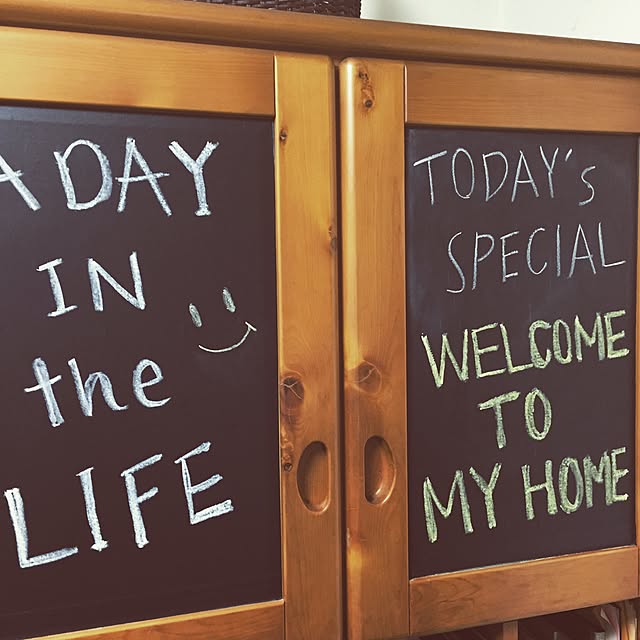 A DAY
IN
the
LIFE
TODAY's
SPECIAL
WELCOME
TO
MY HOME